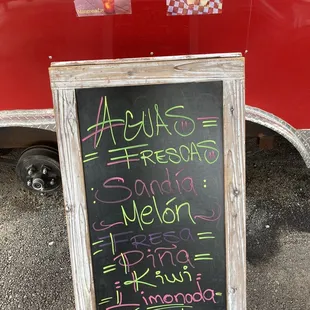 AGUAS
FRESCAS
Sandía
Melón
FRESA
Piña
Kiwi
Limonada